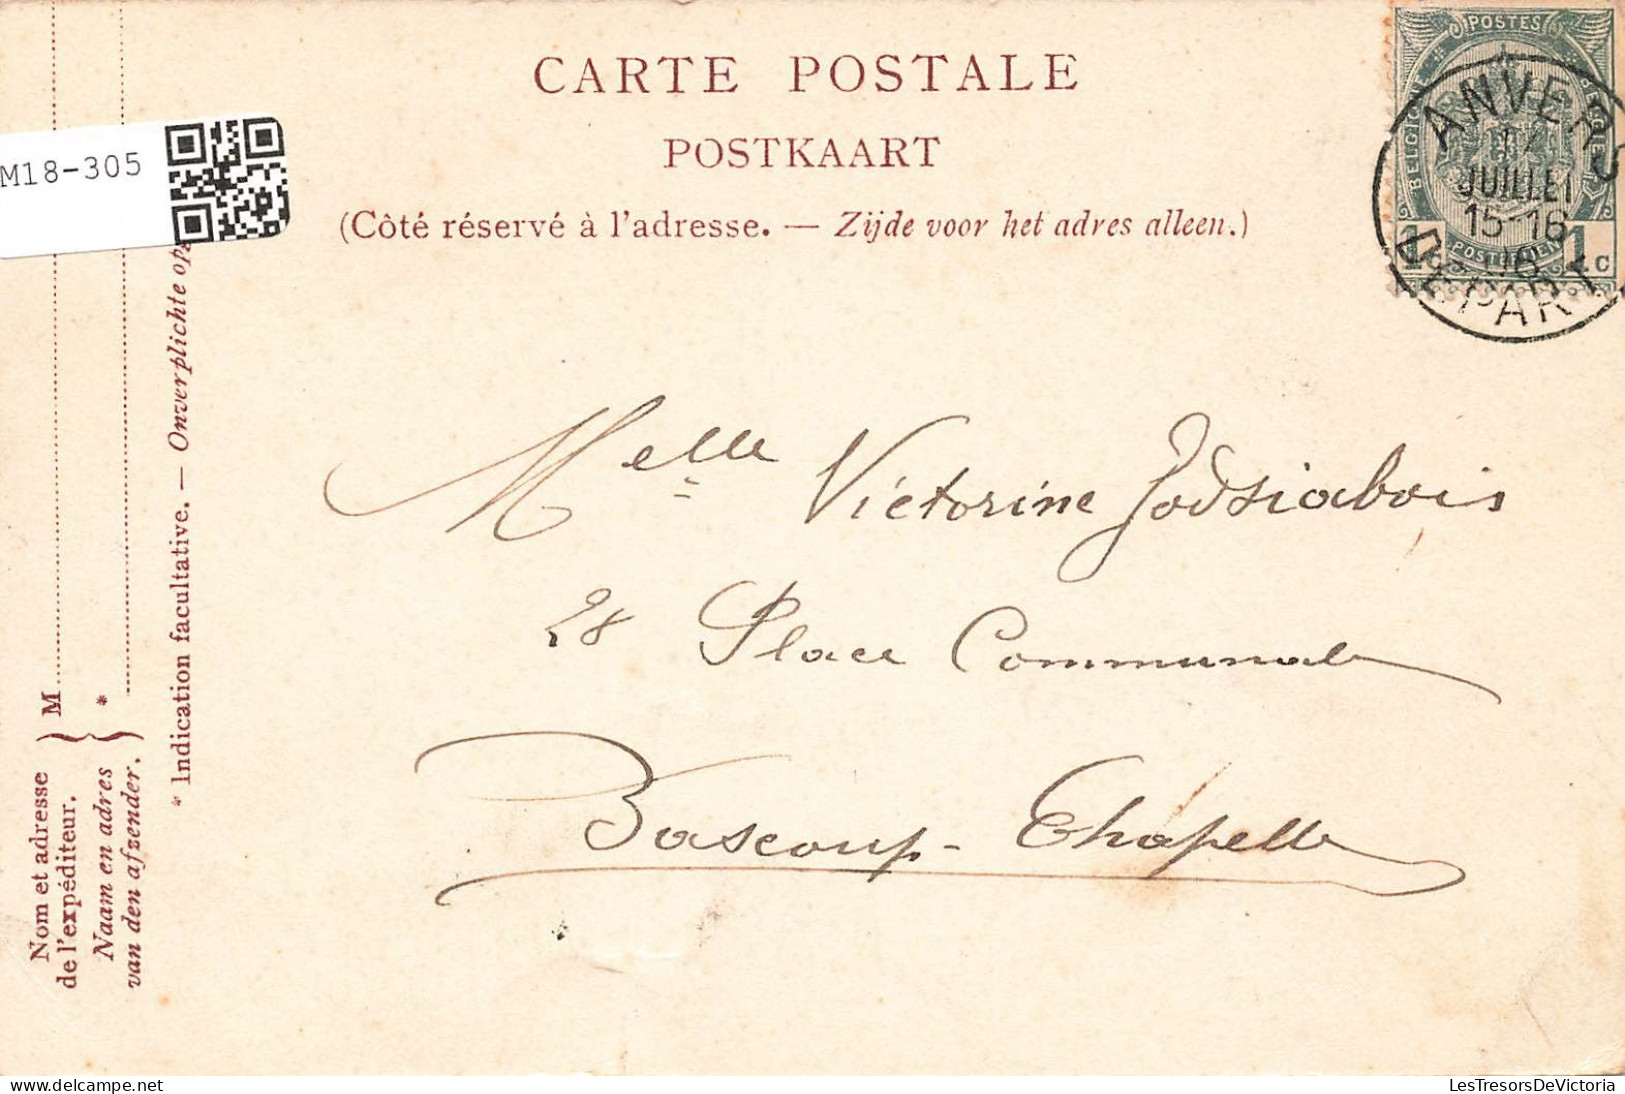 CARTE POSTALE
POSTKAART
(Côté réservé à l'adresse. — Zijde voor het adres alleen.)
M18-305
POSTES
BELGIQUE
1 1c
ANVERS
JUILLET
15-16
DEPART
Melle Victorine
28 Place Communale
Bascoup-Chapelle
Nom et adresse
de l'expéditeur.
Naam en adres
van den afzender.
M
*
* Indication facultative. — Onverplichte
LesTresorsDeVictoria